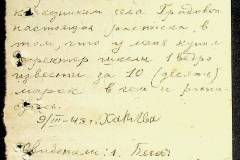 села Градовки
настоящая расписка в
том, что у меня купил
директор школы 1 ведро
извести за 10 (десять)
марок в чем и распи-
суюсь.
9/III-43 г.
Свидетели: 1.